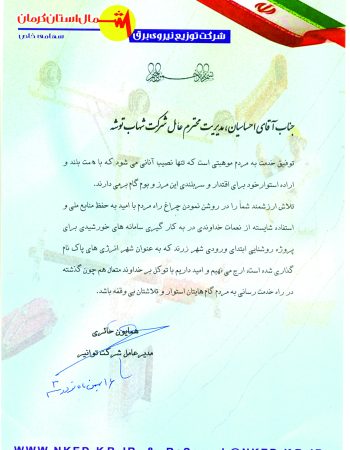 شمال استان کرمان
شرکت توزیع نیروی برق
سهامی خاص
جناب آقای احساسیان، مدیریت محترم عامل شرکت شهاب توشه
توفیق خدمت به مردم موهبتی است که تنها نصیب آنانی می شود که با همت بلند و
اراده استوار خود برای اقتدار و سربلندی این مرز و بوم گام برمی دارند.
تلاش ارزشمند شما را در روشن نمودن چراغ راه مردم با امید به حفظ منابع ملی و
استفاده شایسته از نعمات خداوندی در به کار گیری سامانه های خورشیدی برای
پروژه روشنایی ابتدای ورودی شهر زرند که به عنوان شهر انرژی های پاک نام
گذاری شده است، ارج می نهیم و امید داریم با توکل بر خداوند متعال هم چون گذشته
در راه خدمت رسانی به مردم گام هایتان استوار و تلاشتان بی وقفه باشد.
همایون حائری
مدیرعامل شرکت توانیر